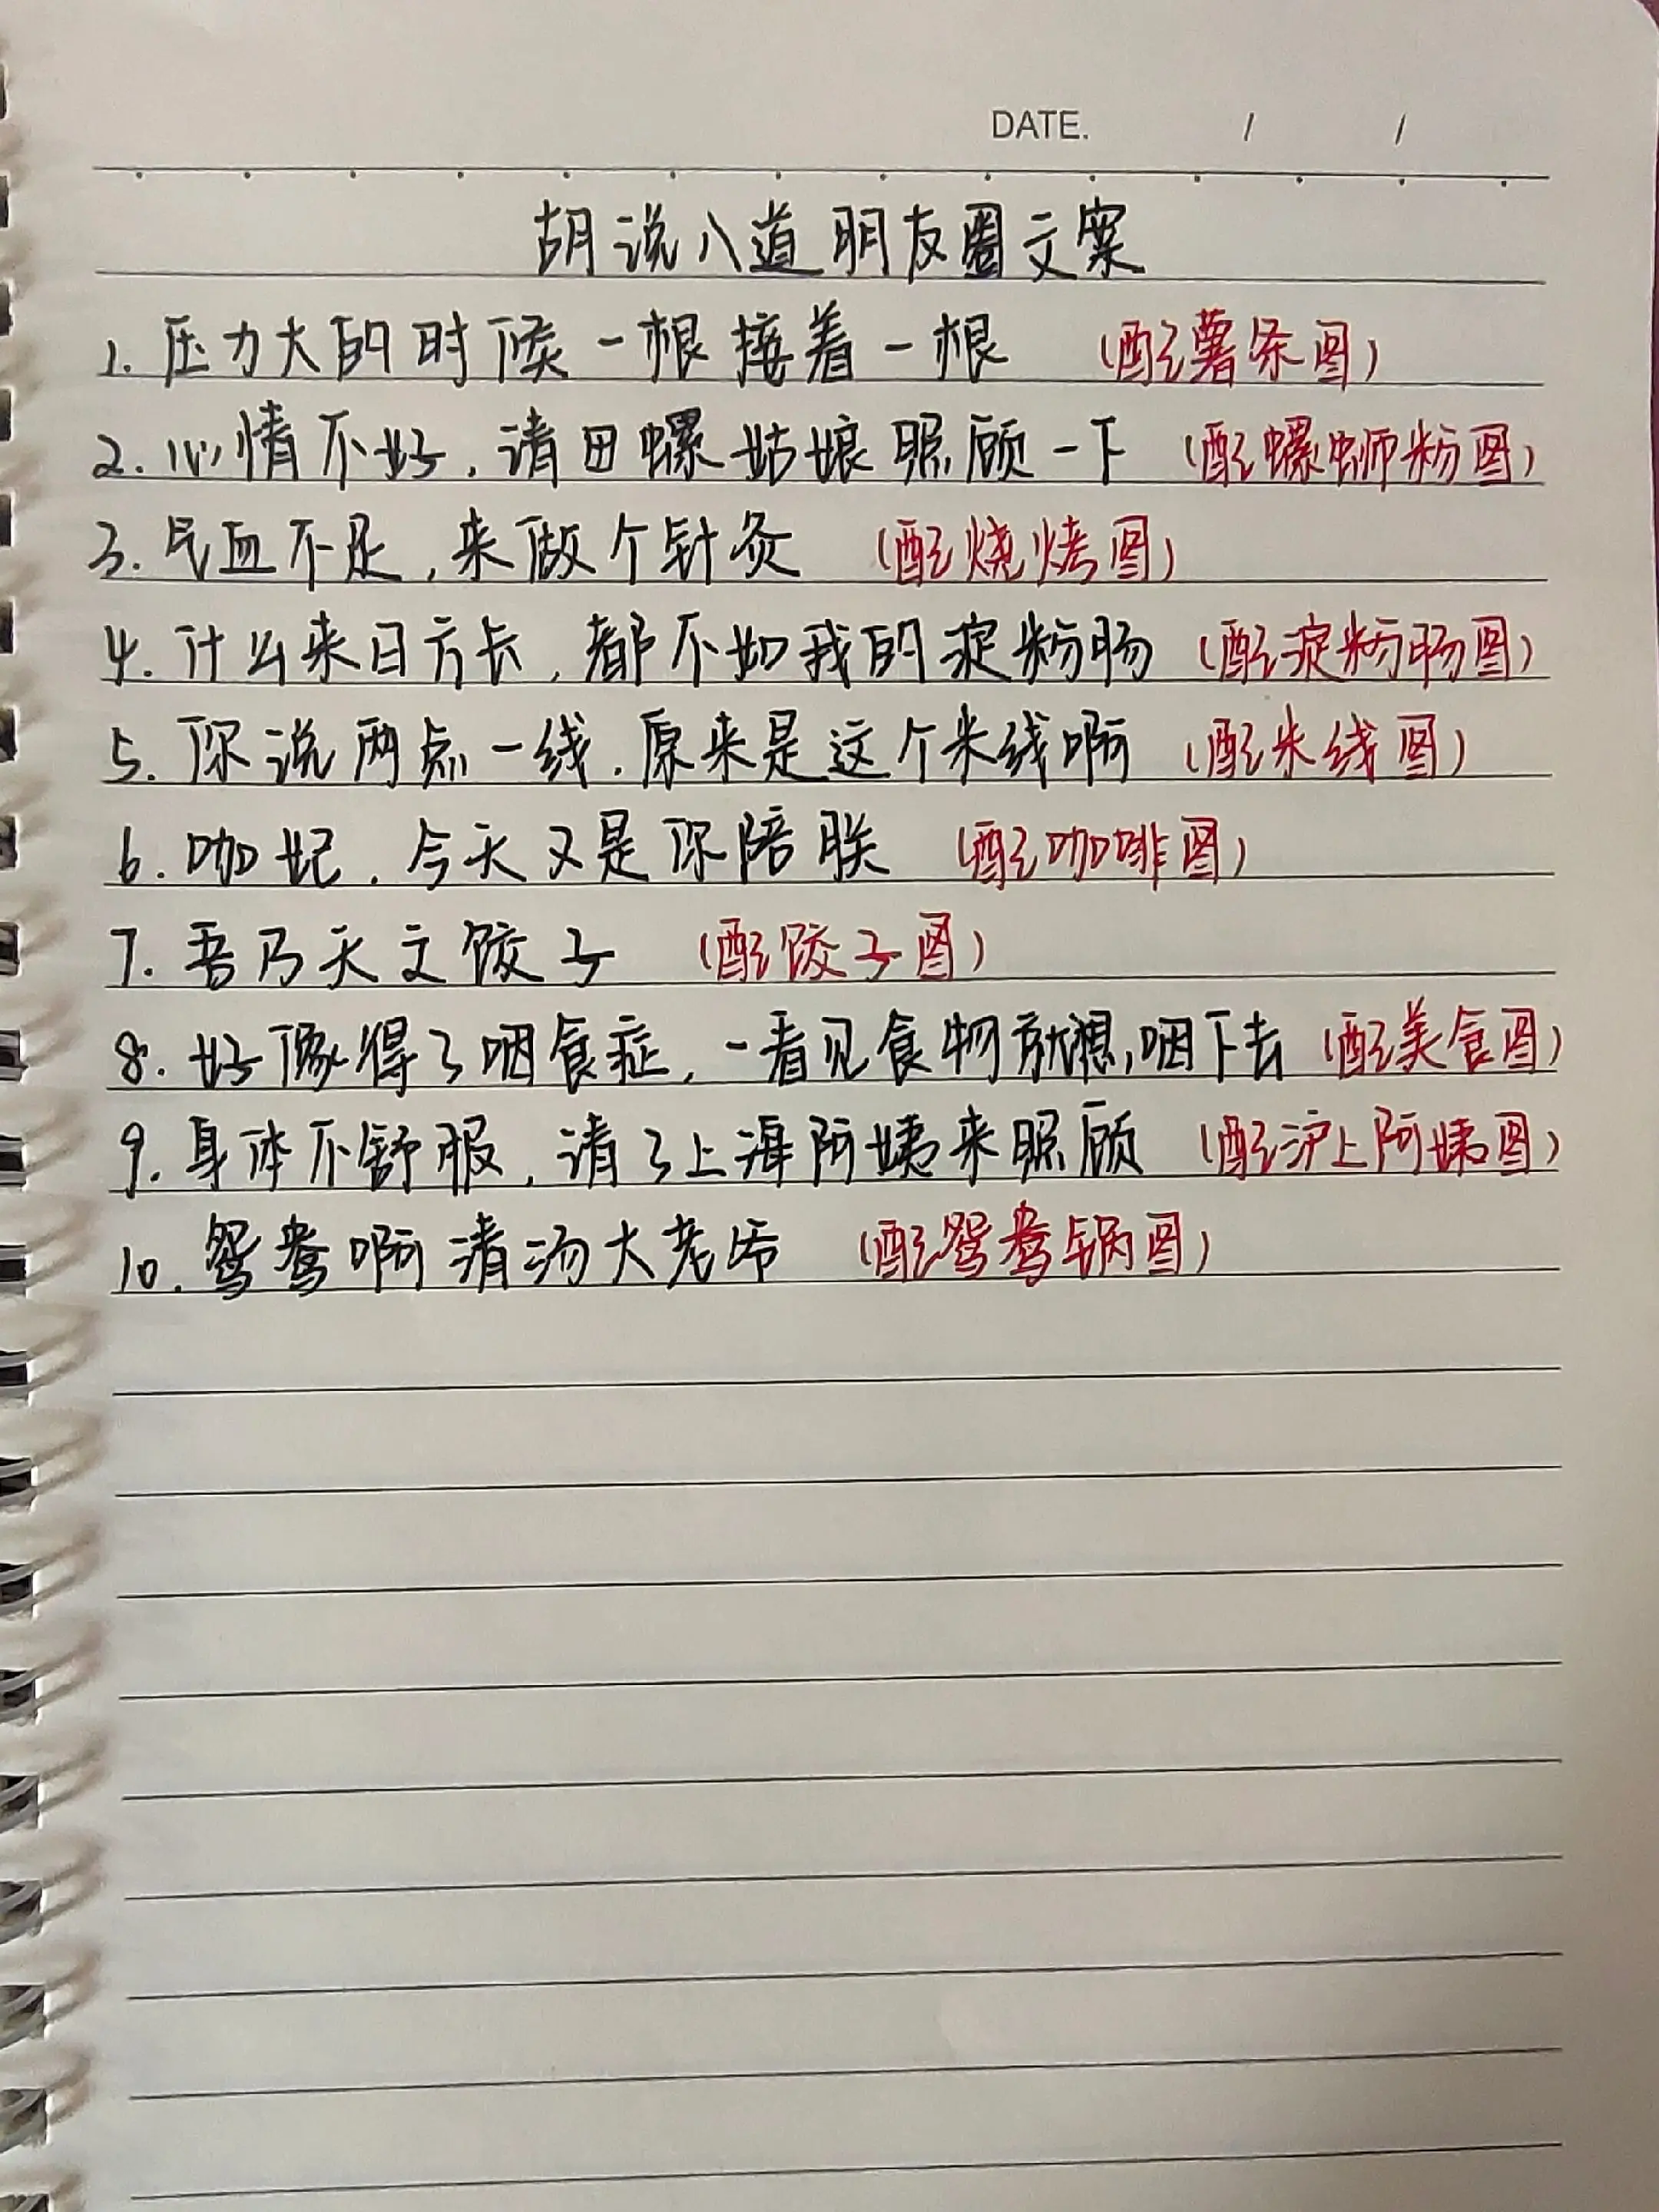 DATE. / /
胡说八道朋友圈文案
1. 压力大的时候一根接着一根 (配薯条图)
2. 心情不好, 请田螺姑娘照顾一下 (配螺蛳粉图)
3. 气血不足, 来做个针灸 (配烧烤图)
4. 什么来日方长, 都不如我的淀粉肠 (配淀粉肠图)
5. 你说两点一线. 原来是这个米线啊 (配米线图)
6. 咖妃. 今天又是你陪朕 (配咖啡图)
7. 吾乃天文饺子 (配饺子图)
8. 好像得了咽食症, 一看见食物就想咽下去 (配美食图)
9. 身体不舒服, 请了上海阿姨来照顾 (配沪上阿姨图)
10. 鸳鸯啊清汤大老爷 (配鸳鸯锅图)